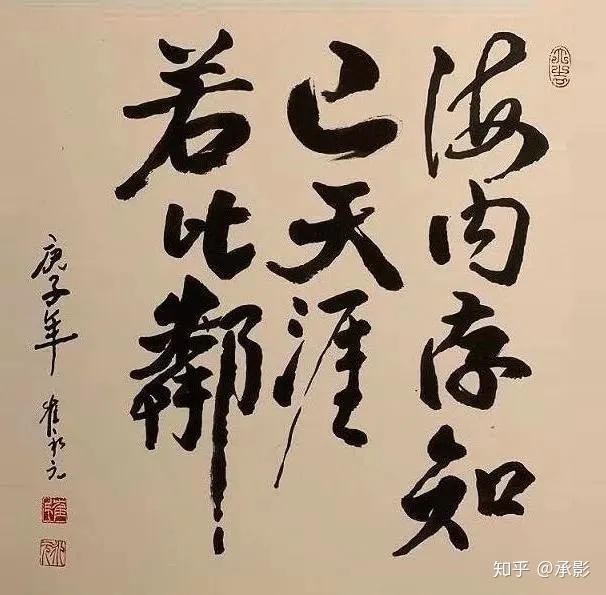 海内存知
已天涯
若比鄰
庚子年
知乎 @承影